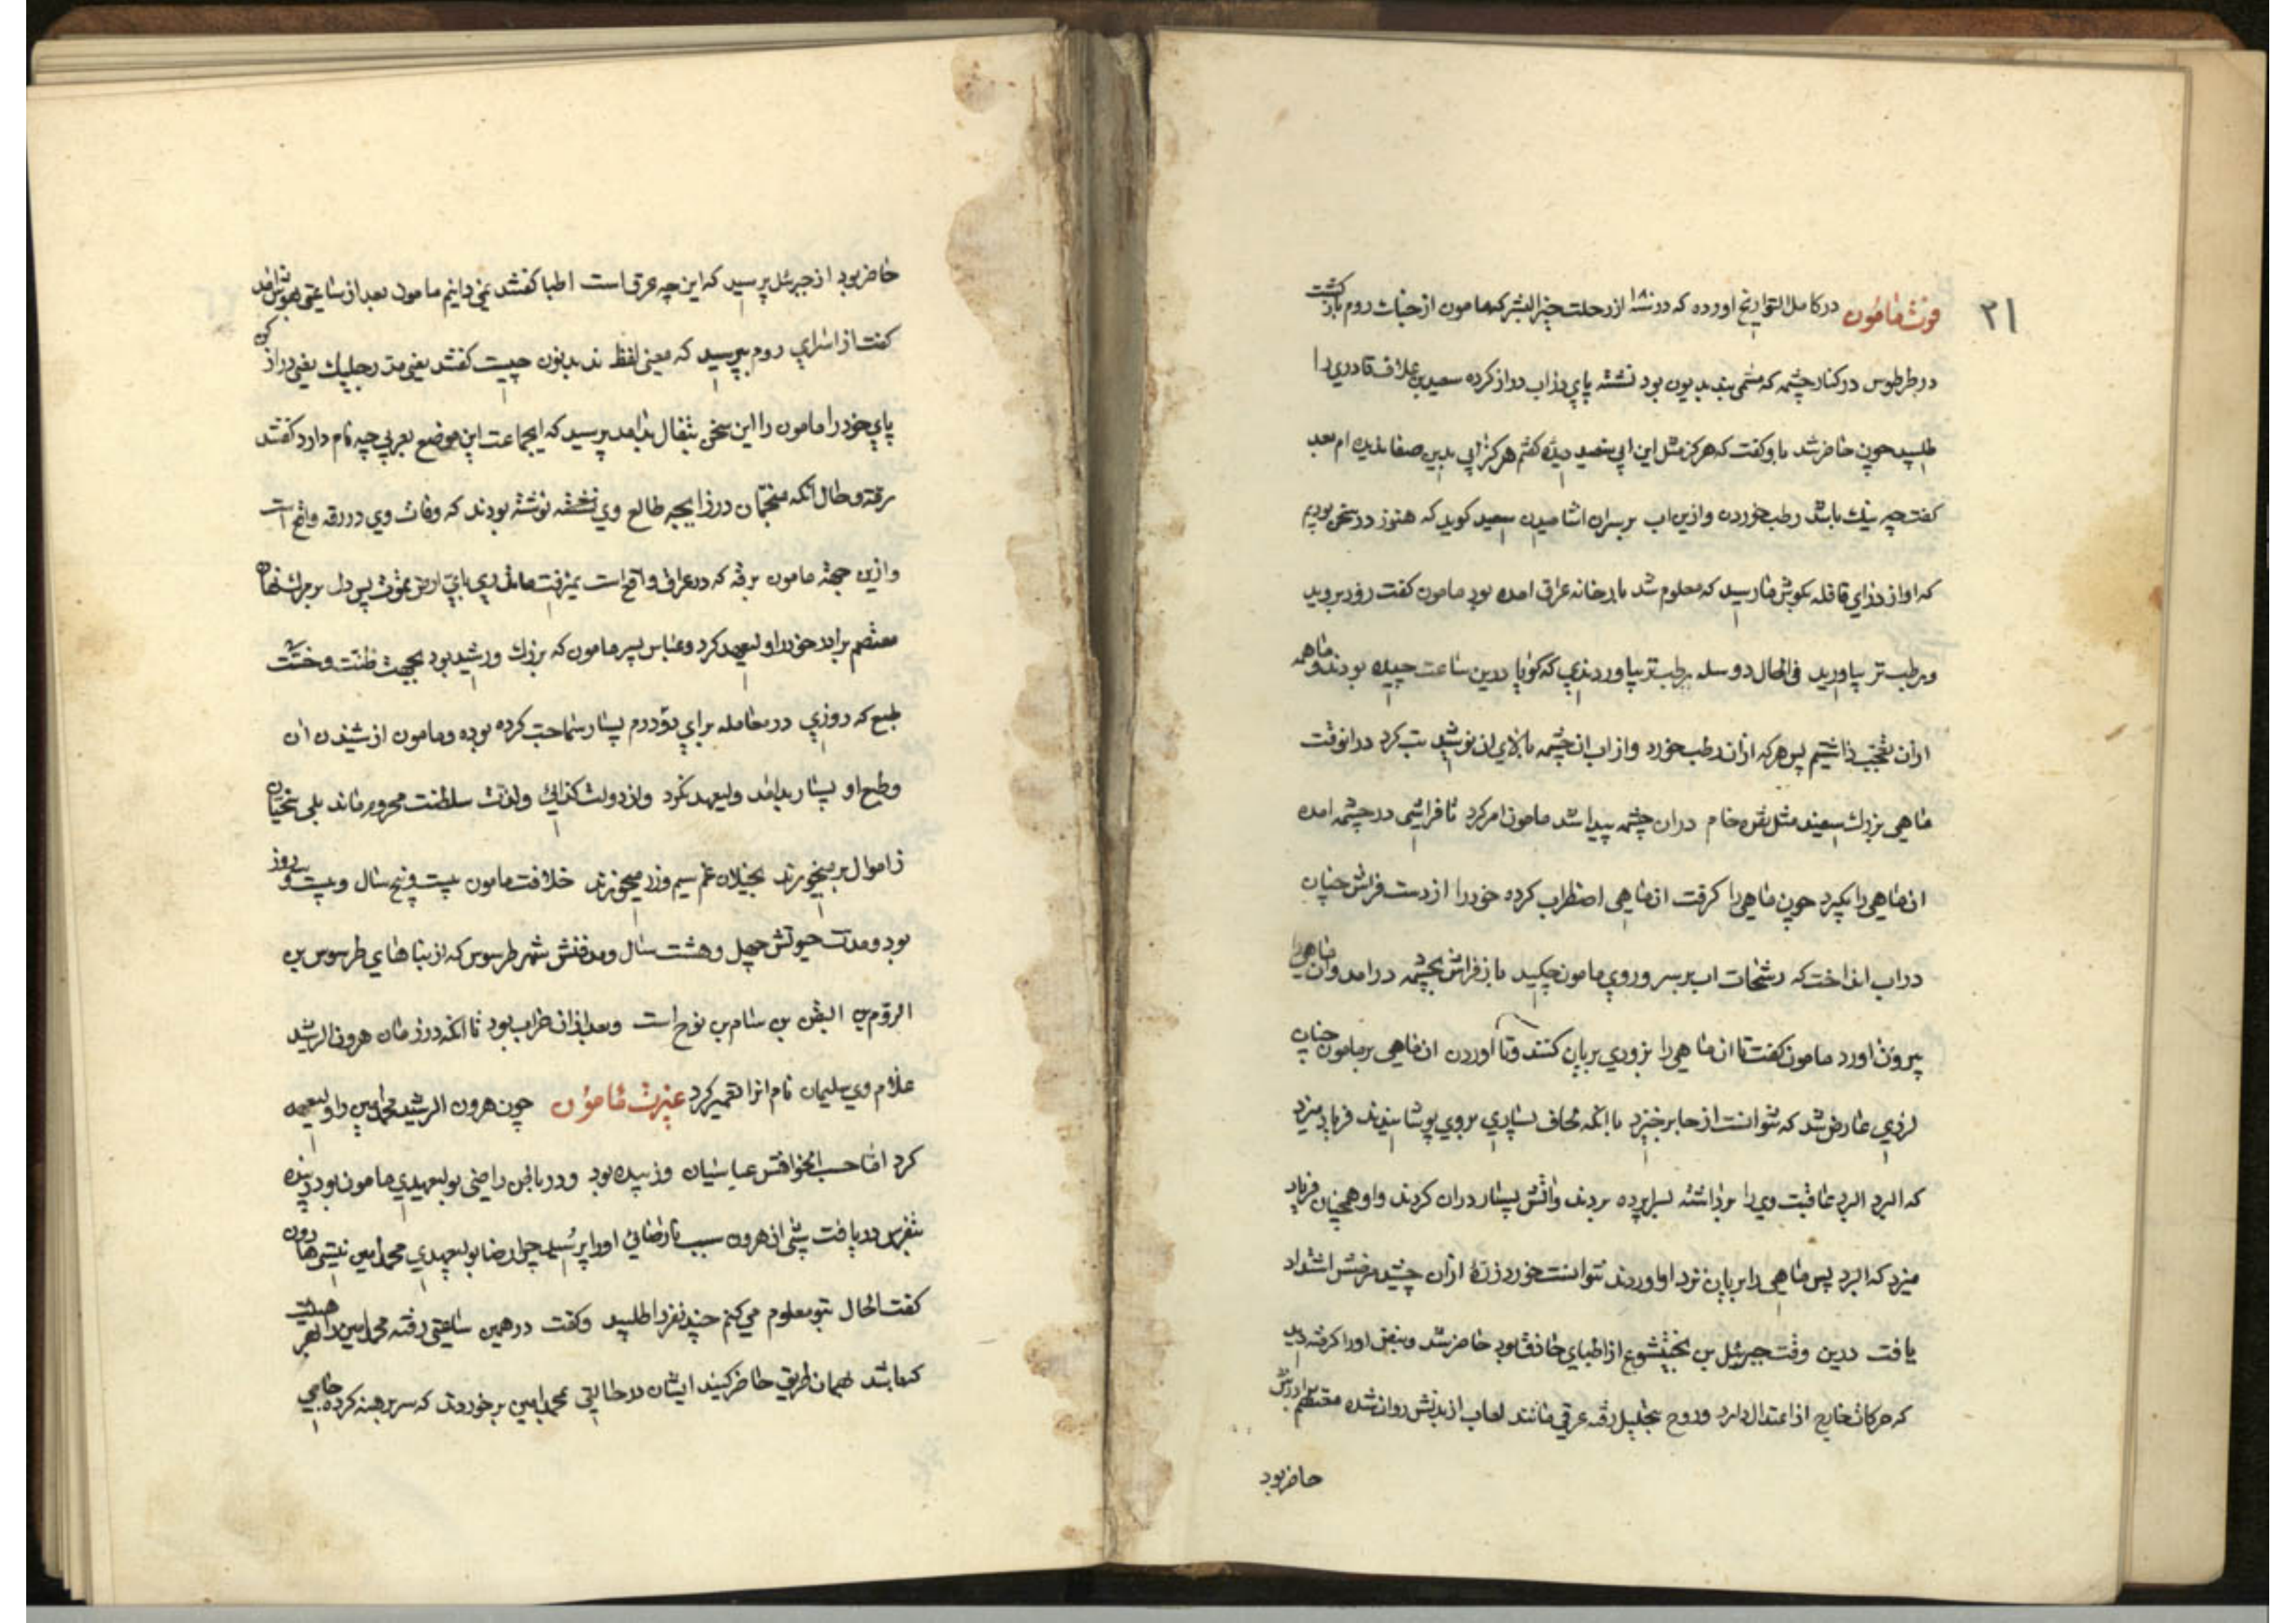 ۳۱
فوت مامون در کامل التواریخ اورده که در از رحلت خیر البشر که مامون از جنات روم بازکشت
در طرطوس در کنار چشمه که مسمی بود نشسته پای در اب دراز کرده سعید بن علاف قادری را
طلبید چون حاضر شد باو کفت که هرکز مثل این ابی دیده کفتم هرکز ابی بدین صفا ندیده ام بعد
کفت چه نیک باشد رطب خوردن و ازین اب بر سران اشامیدن سعید کوید که هنوز در سخن بودیم
که اواز درای قافله بکوش ما رسید که معلوم شد بارخانه عراق امده بود مامون کفت زود بروید
و رطب تر بیاورید فی الحال دو سله رطب تر بیاوردندی که کویا درین ساعت چیده بودند و ما همه
ازان تعجب داشتیم پس هرکه ازان رطب خورد و از اب ان چشمه بالای ان نوشید تب کرد در انوقت
ماهی بزرک سفید مثل نقره خام دران چشمه پیدا شد مامون امر کرد تا فراشی در چشمه امده
ان ماهی را بکیرد چون ماهی را کرفت ان ماهی اضطراب کرده خود را از دست فراش چنان
در اب انداخت که رشحات اب بر سر و روی مامون چکید باز فراش بچشمه در امد و ان ماهی را
بیرون اورد مامون کفت تا ان ماهی را بزودی بریان کنند و تا اوردن ان ماهی بر مامون چنان
لرزی عارض شد که نتوانست از جا برخیزد با انکه لحاف بسیاری بروی پوشانیدند فریاد میزد
که البرد البرد عاقبت وی را برداشته بسراپرده بردند و اتش بسیار دران کردند و او همچنان فریاد
میزد که البرد پس ماهی را بریان نزد او اوردند نتوانست خورد ازان چشید مرضش اشتداد
یافت درین وقت جبرئیل بن بختیشوع از اطبای حاذق بود حاضر شد و نبض او را کرفته دید
که حرکات خارج از اعتدال دارد و روح بتحلیل رفته عرقی مانند لعاب از بدنش روان شده معتصم برادرش
حاضر بود
حاضر بود از جبرئیل پرسید که این چه عرق است اطبا کفتند نمی دانیم مامون بعد از ساعتی بهوش امد
کفت از اسرای روم بپرسید که معنی لفظ بدیدون چیست کفتند یعنی مد رجلیک یعنی دراز کن
پای خود را مامون را این سخن بتفال بد امد پرسید که ایجماعت این موضع بعربی چه نام دارد کفتند
رقه و حال انکه منجمان در زایجه طالع وی نوشته بودند که وفات وی در رقه واقع است
و ازین جهته مامون برقه که در عراق واقع است نمیرفت پس دل بر مرک نهاد
معتصم برادر خود را ولیعهد کرد و عباس پسر مامون که بزرک و رشید بود بجهت و خست
طبع که روزی در معامله برای دو درم بسیار سماجت کرده بوده و مامون از شنیدن ان
و طبع او بسیار بد امد ولیعهد نکرد و از دولت کذائی و لذت سلطنت محروم ماند بلی سخیان
ز اموال بر میخورند بخیلان غم سیم و زر میخورند خلافت مامون بیست و پنج سال و بیست و سه روز
بود و مدت حیوتش چهل و هشت سال و مدفنش شهر طرسوس که از بناهای طرسوس بن
الروم بن الیفن بن سام بن نوح است و بعد ازان خراب بود تا انکه در زمان هرون الرشید
غلام وی سلیمان نام انرا تعمیر کرد عبرت مامون چون هرون الرشید محمد امین را ولیعهد
کرد اما حسب الخواهش عباسیان و زبیده بود و در باطن راضی بولیعهدی مامون بود زبیده
بتفرس دریافت شبی از هرون سبب نارضائی او را پرسید چرا رضا بولیعهدی محمد امین نیستی هارون
کفت الحال بتو معلوم می کنم چند نفر را طلبید و کفت در همین ساعتی رفته محمد امین را بهر حالت
که باشد همان طریق حاضر کنید ایشان در حالتی بمحمد امین برخوردند که سر برهنه کرده